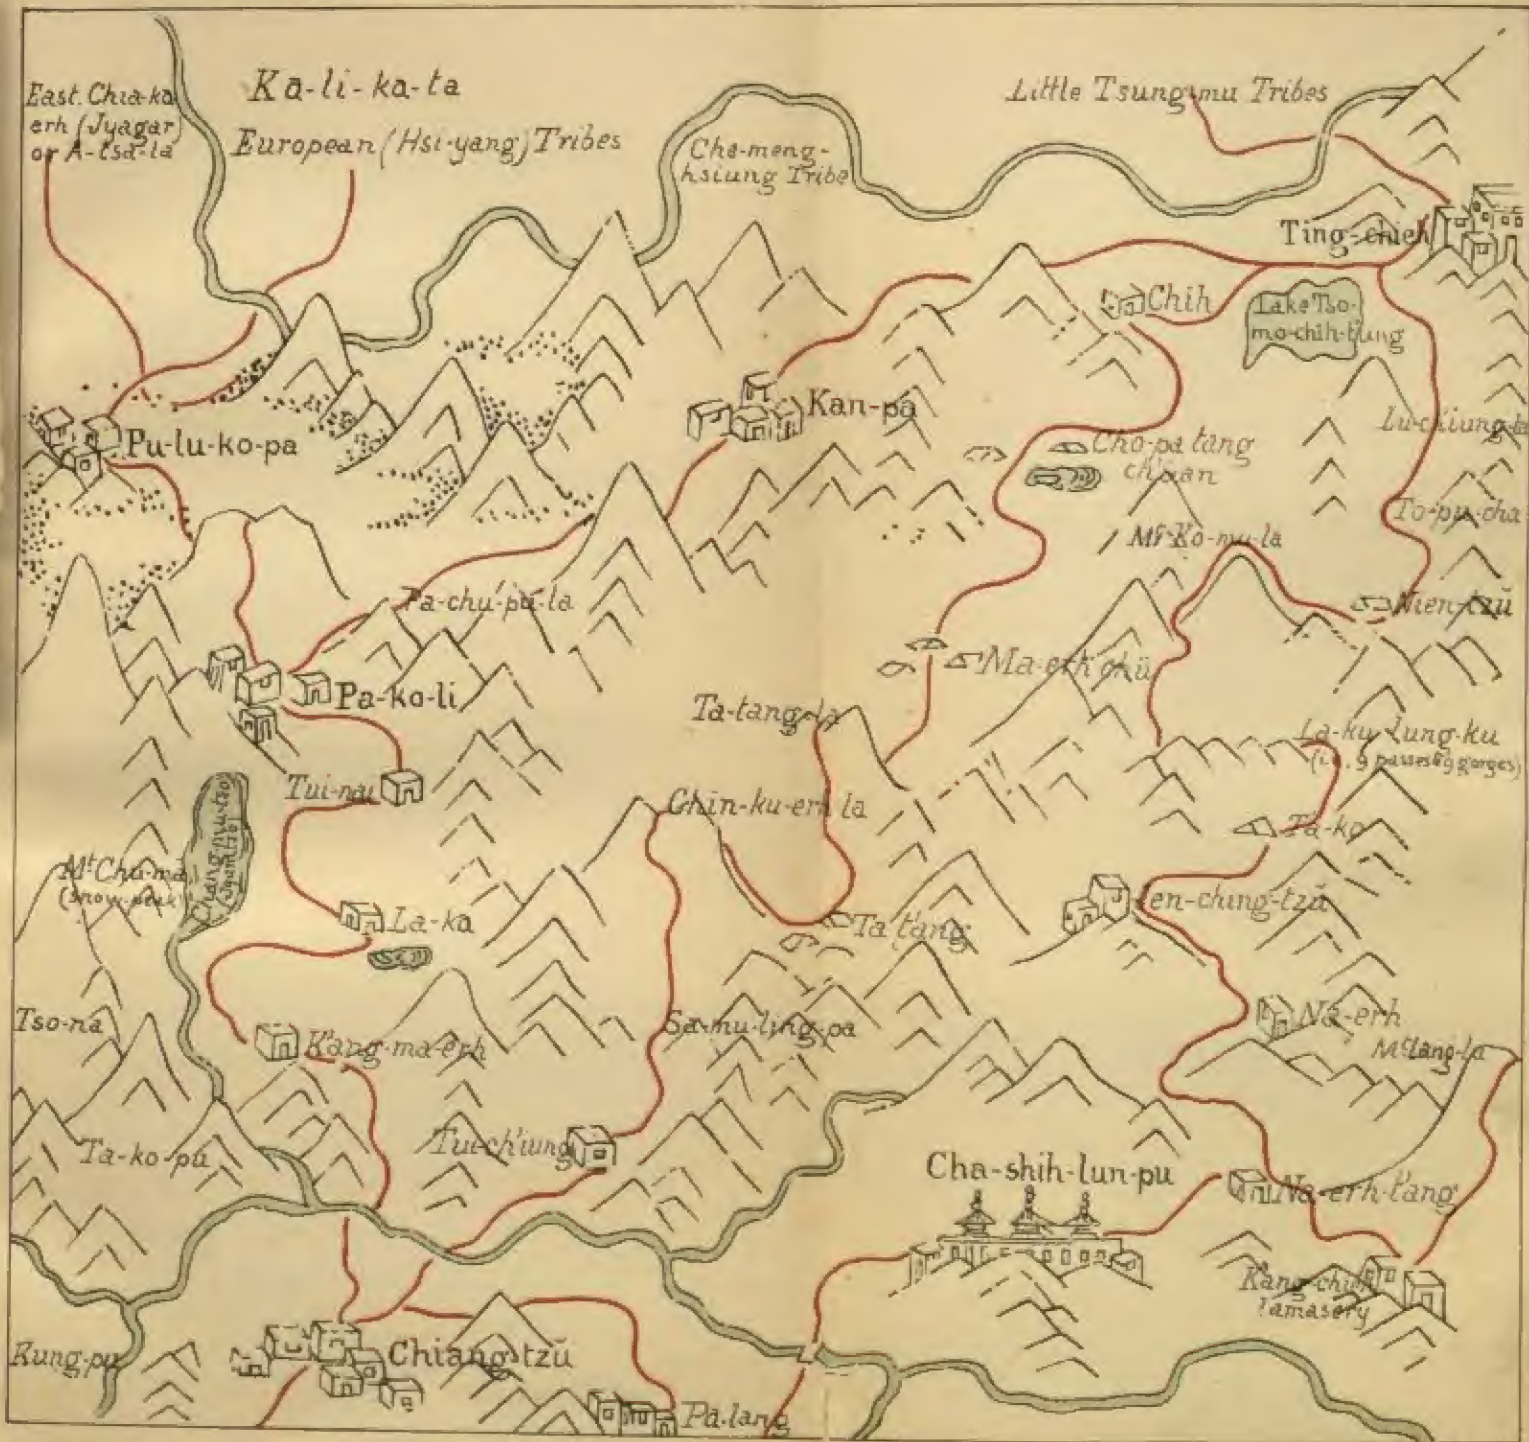 East. Chia-ka
erh (Jyagar)
or A-tsa-la
Ka-li-ka-ta
European (Hsi-yang) Tribes
Che-meng-
hsiung Tribe
Little Tsung-mu Tribes
Ting-chieh
Chih
Lake Tso-
mo-chih-t'ung
Kan-pa
Pu-lu-ko-pa
Cho-pa tang
ch'üan
Lu-ch'iung-la
To-pu-cha
Mt Ko-mu-la
Nien-tzŭ
Pa-chu-pu-la
Ma-erh chü
Pa-ko-li
Ta-tang-la
La-ku lung-ku
(i.e. 9 passes & 9 gorges)
Tui-na
Chin-ku-erh la
Ta-ko
Chang-mu-tso
Mt Chu-ma
(snow peak)
La-ka
Ta t'ang
Jen-ching-tzŭ
Tso-na
K'ang-ma-erh
Sa-mu-ling-pa
Na-erh
Mt lang-la
Ta-ko-pu
Tui-ch'iung
Cha-shih-lun-pu
Na-erh-t'ang
K'ang-chien
lamasery
Kung-pu
Chiang-tzŭ
Pa-lang